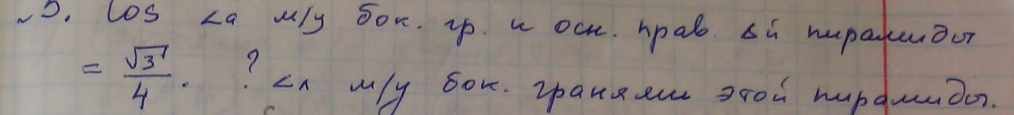 √5. cos <а м/у бок. гр. и осн. прав. Δй пирамиды
= √3/4. ? <λ м/у бок. гранями этой пирамиды.